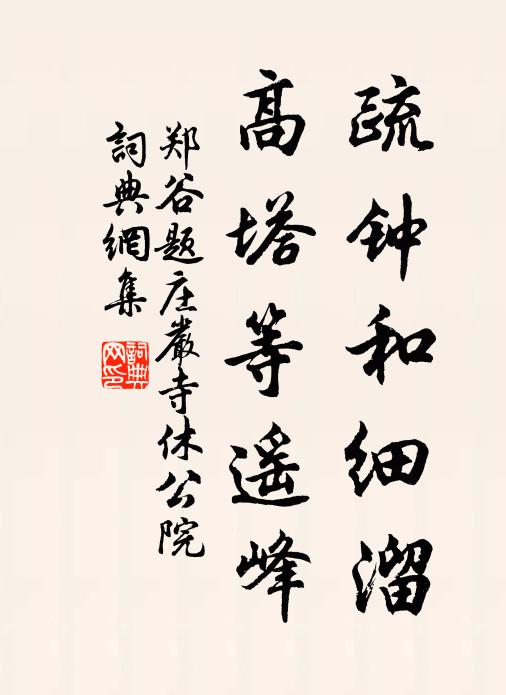 疏钟和细溜
高塔等遥峰
郑谷题庄严寺休公院
詞典網集
詞典网印